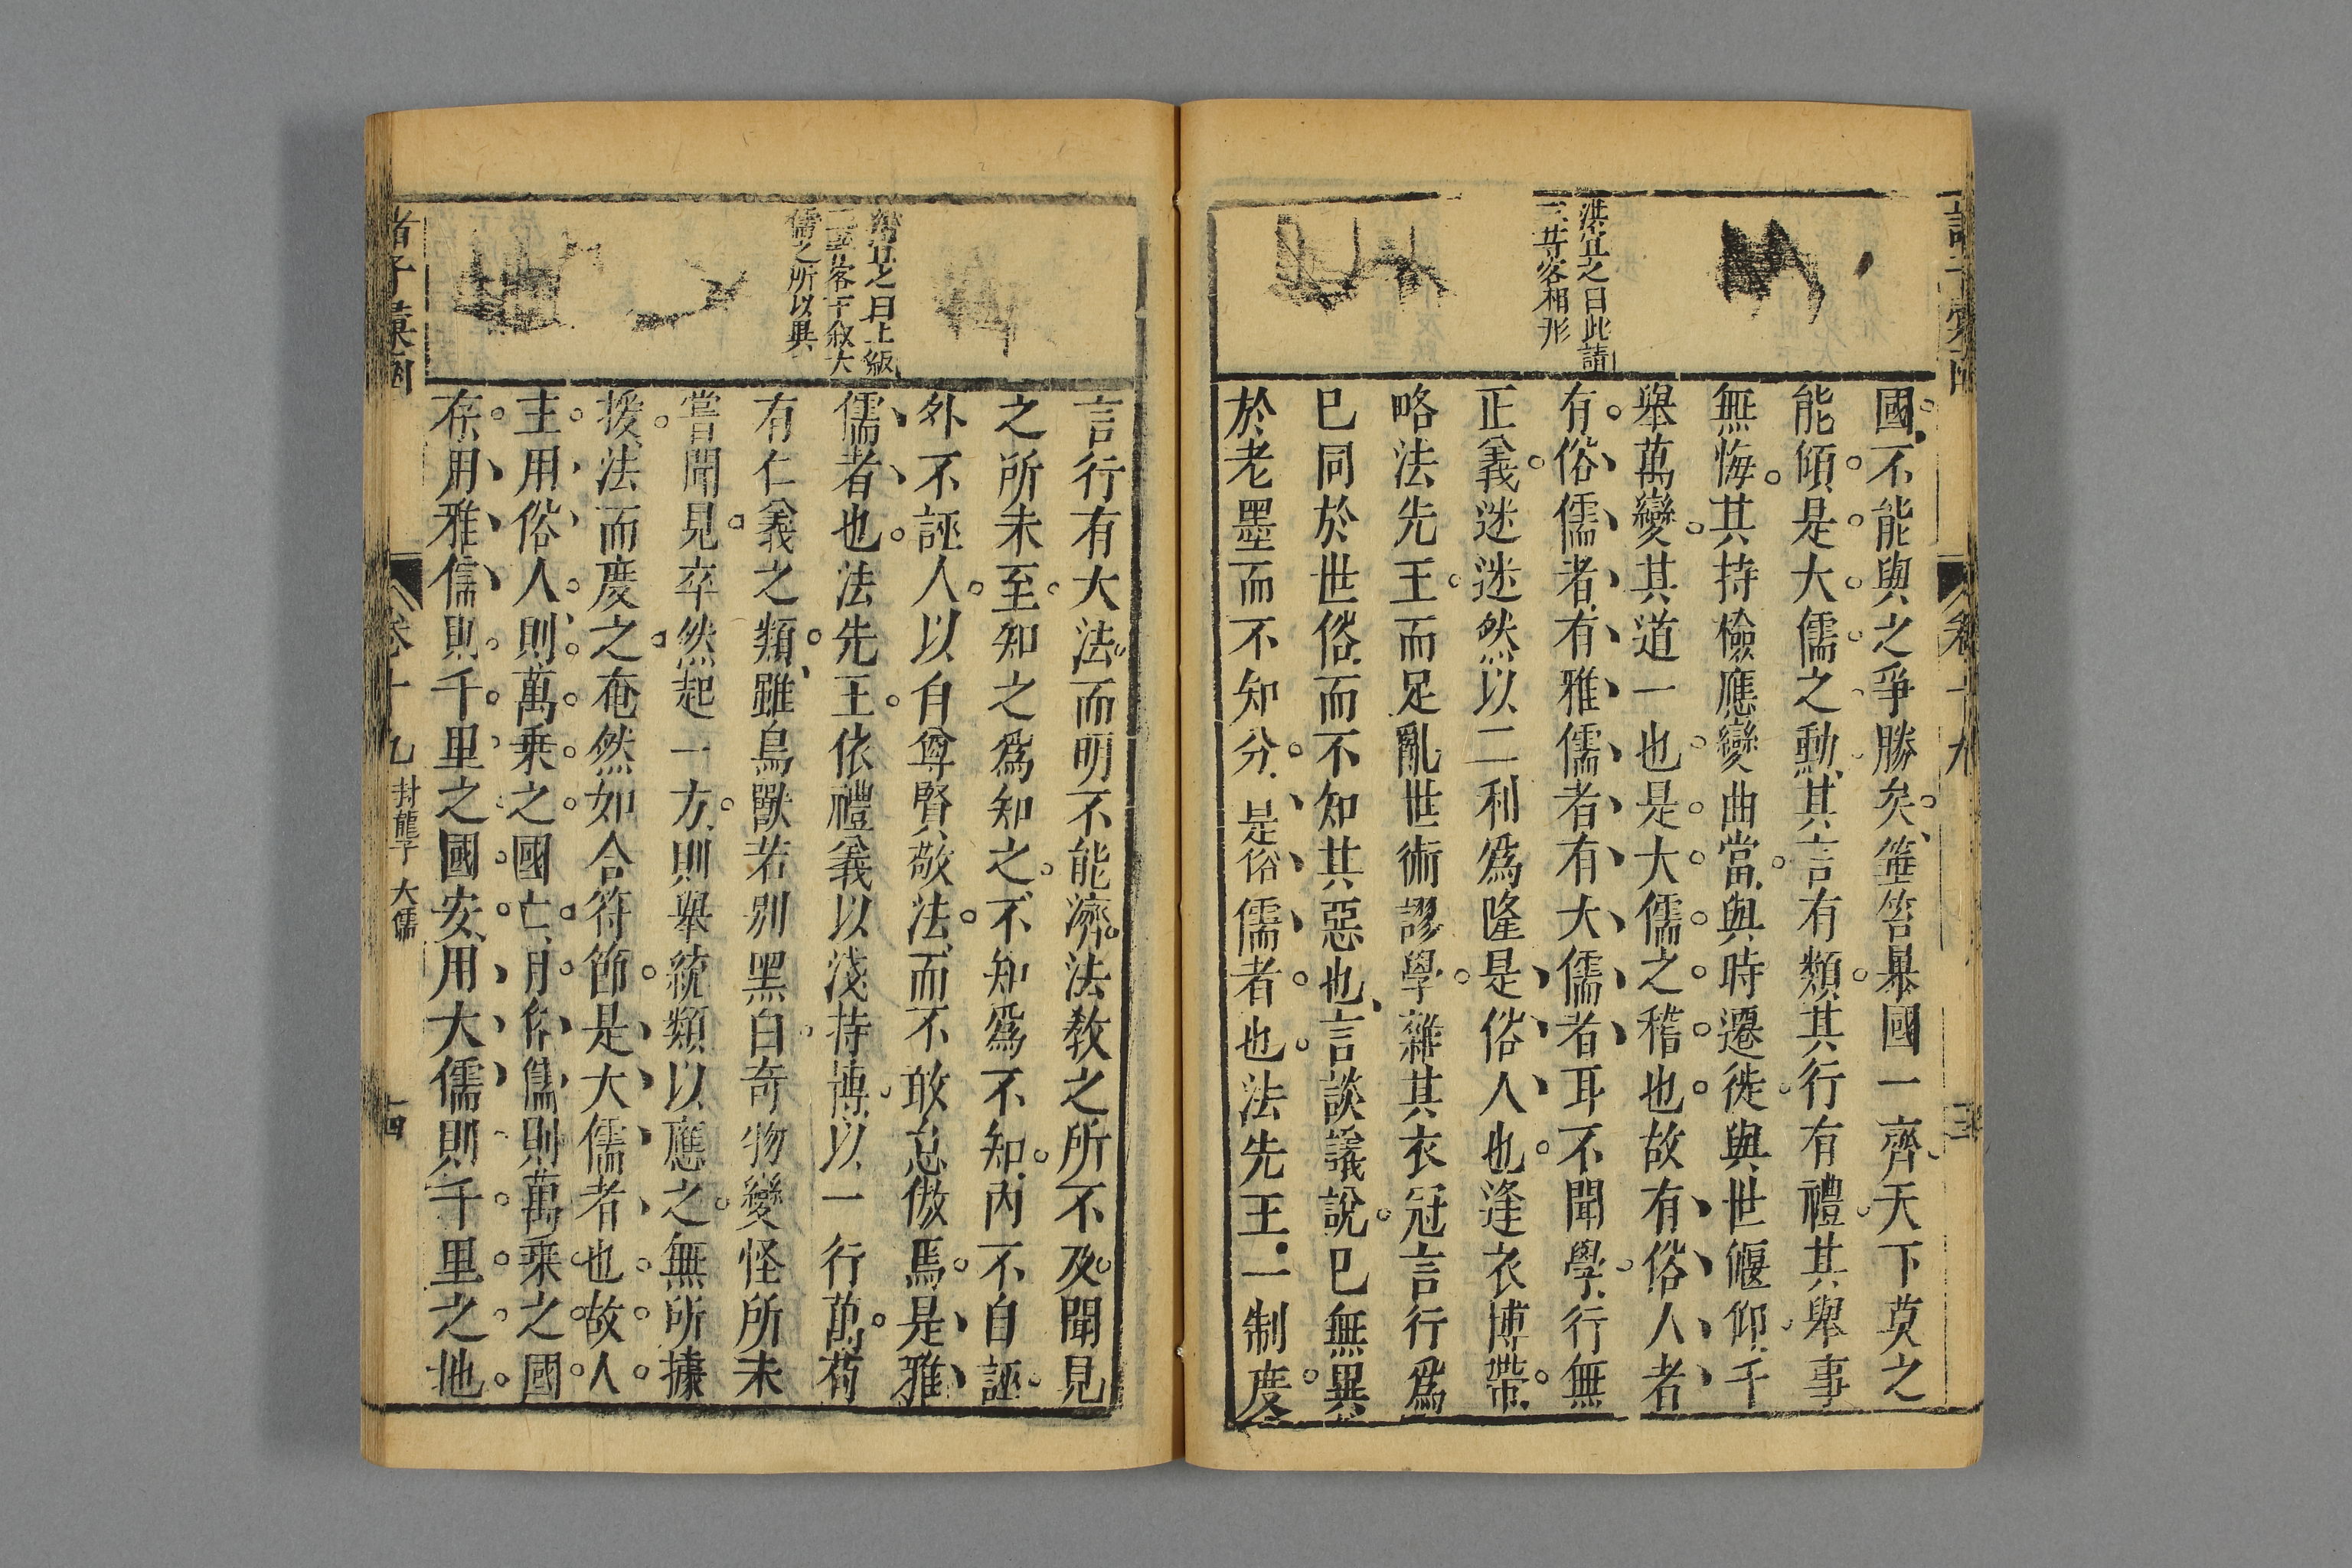 洪宜之曰此請
三等客相形
國不能與之爭勝矣箠笞㬥國一齊天下莫之
能傾是大儒之勳其言有類其行有禮其舉事
無悔其持檢應變曲當與時遷徙與世偃仰千
舉萬變其道一也是大儒之稽也故有俗人者
有俗儒者有雅儒者有大儒者耳不聞學行無
正義迷迷然以二利爲隆是俗人也逢衣博帶
略法先王而足亂世術謬學雜其衣冠言行爲
巳同於世俗而不知其惡也言談議說巳無異
於老墨而不知分是俗儒者也法先王一制度
之曰上級
三等客下敘大
儒之所以異
言行有大法而明不能濟法教之所不及聞見
之所未至知之爲知之不知爲不知内不自誣
外不誣人以自尊賢敬法而不敢怠傲焉是雅
儒者也法先王依禮義以淺持博以一行萬苟
有仁義之類雖鳥獸若别黑白奇物變怪所未
嘗聞見卒然起一方則舉統類以應之無所據
援法而度之奄然如合符節是大儒者也故人
主用俗人則萬乗之國亡用俗儒則萬乗之國
存用雅儒則千里之國安用大儒則千里之地
諸子彙函
卷十九
封龍子 大儒
十四